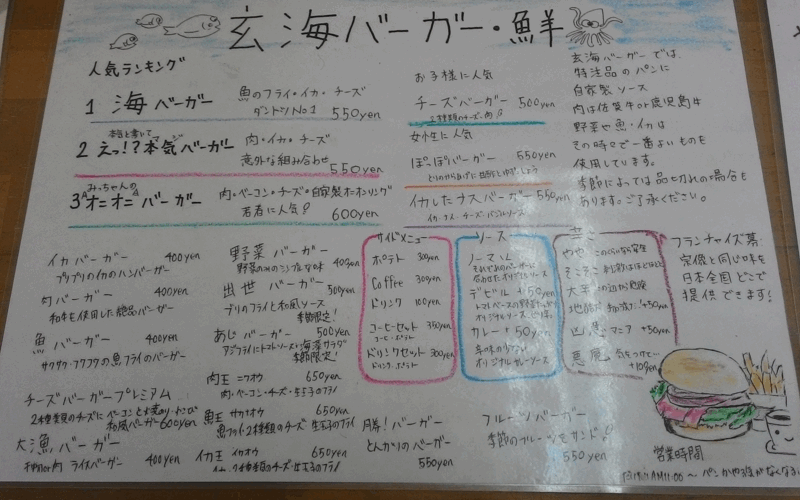 玄海バーガー・鮮
人気ランキング
1 海バーガー
魚のフライ・イカ・チーズ
ダントツNo1 550yen
本気と書いてマジ
2 えっ!?本気バーガー
肉・イカ・チーズ
意外な組み合わせ 550yen
みっちゃんの
3 オニオニバーガー
肉・ベーコン・チーズ・自家製オニオンリング
若者に人気! 600yen
お子様に人気
チーズバーガー 500yen
2種類のチーズ、肉
女性に人気
ぽっぽバーガー 550yen
イカしたナスバーガー 550yen
玄海バーガーでは、
特注品のパンに
自家製ソース
肉は佐賀牛or鹿児島牛
野菜や魚・イカは
その時々で一番よいものを
使用しています。
季節によっては品切れの場合も
あります。ご了承ください。
イカバーガー 400yen
プリプリのイカのハンバーガー
肉バーガー 400yen
和牛を使用した絶品バーガー
魚バーガー 400yen
サクサク・フワフワの魚フライのバーガー
チーズバーガープレミアム
和風バーガー 600yen
大漁バーガー
ライスバーガー 400yen
野菜バーガー 400yen
野菜のみのシンプルな味
出世バーガー 500yen
ブリのフライと和風ソース
季節限定!
あじバーガー 500yen
アジフライにトマトソース・海藻サラダ
季節限定!
肉王 ニクオウ 650yen
肉・ベーコン・チーズ・生玉子のフライ
魚王 サカナオウ 650yen
魚フライ・2種類のチーズ 生玉子のフライ
イカ王 イカオウ 650yen
イカ・2種類のチーズ・生玉子のフライ
サイドメニュー
ポテト 300yen
Coffee 300yen
ドリンク 100yen
コーヒーセット 350yen
コーヒー・ポテト
ドリンクセット 300yen
ドリンク・ポテト
ソース
ノーマル
それぞれのバーガーに
合わせたオリジナルソース
デビル +50yen
カレー +50yen
辛味の少ない
オリジナルカレーソース
やや
そこそこ
大辛
地獄 +50yen
凶悪 マニア +50yen
悪魔 気をつけて…
+100yen
フランチャイズ募集
宗像と同じ味を
日本全国どこで
提供できます!
月昇!バーガー
とんがりのバーガー
550yen
フルーツバーガー
季節のフルーツをサンド!
550yen
営業時間
AM11:00 ～ パンがなくなる